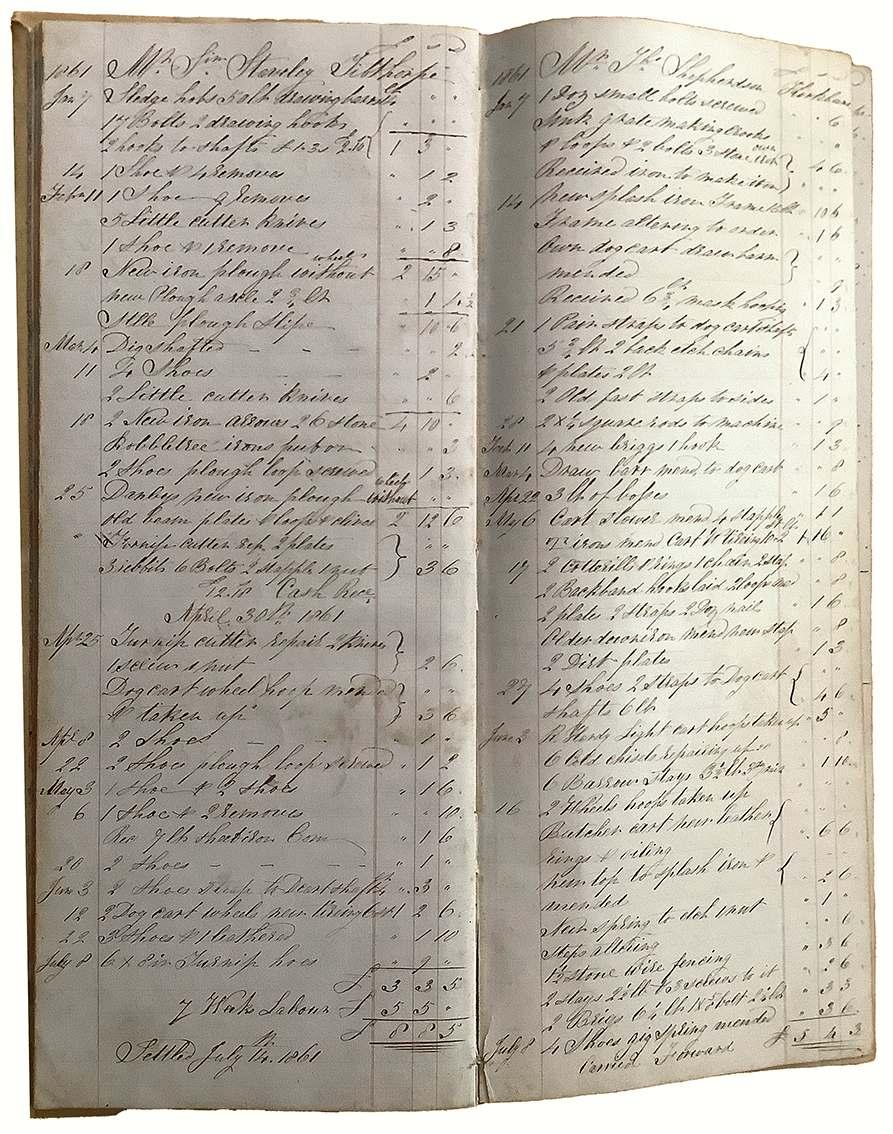 1861 Mr Sim Staveley Tilthorpe
Jan 7 Sledge hobs 5 a lb drawing barr
17 Bolts 2 drawing hooks
2 hooks to shafts 1 3 "
14 1 Shoe & 4 removes " 1 2
Febr 11 1 Shoe 9 removes " 2 "
5 Little cutter knives " 1 3
1 Shoe & 1 remove " " 8
18 New iron plough without wheels 2 15 "
new Plough axle 2 3/4 lb " 1 1 1/2
plough slipe " 10 6
Mar 4 Dig shafted - - - " " 2
11 Shoes - - " 2 "
2 Little cutter knives " " 6
18 2 New iron arrows 26 stone 4 10 "
Bobbletree irons put on " " 3
2 Shoes plough loop screwed " 1 3
25 Danbys new iron plough without wheels
old beam plates & loop & clives 2 12 6
" Turnip cutter rep. 2 plates " "
3 ribbits 6 Bolts 2 stapples 1 nut 3 6
12.18 Cash Rece
April 30th 1861
Apr 25 Turnip cutter repair 2 knives
1 screw & nut 2 6
Dog cart wheel hoop mended " "
& taken up 3 6
Apr 8 2 Shoes - - - " 1 "
22 2 Shoes plough loop screwed " " 2
May 3 1 Shoe & 2 Shoes " 1 6
" 6 1 Shoe & 2 removes " " 10
Rec 7 lb sheet iron " 1 6
20 2 Shoes - - - - " 1 "
June 3 2 Shoes strap to Dcart shafts " 3 "
12 2 Dog cart wheels new tiring 1 2 6
22 3 Shoes & 1 leathered " 1 10
July 8 6 x 8 in Turnip hoes " 9 "
£ 3 3 5
7 Weeks Labour £ 5 5 "
£ 8 8 5
Settled July 14th 1861
1861 Mr Th Shepherdson
Jan 7 1 Dog small bolts screwed " " 6
Sink grate making crooks
& loops & 2 bolts 3 stone own iron " 4 6
Received iron to make it on
14 New splash iron Frame " 10 6
Frame altering to order " 1 6
Own dog cart draw barr
mended " " 9
Received 6 3/4 mash hooping " 1 3
21 1 Pair straps to dog cart shafts
5 3/4 lb 2 back etch chains
& plates 2 lb " 4 "
2 Old fast straps to sides " 1 "
28 2 x 1/2 square rods to machine " " 9
Febr 11 4 new Griggs 1 hook " 1 3
Mar 4 Draw barr mend to dog cart " " 8
Apr 22 3 lb of bosses " 1 6
May 6 Cart stower mend 4 stapples " 1 1
T irons mend Cart W tiring 1 16 "
17 2 Cottrills & rings 1 chain 2 stap " " 8
2 Backband hooks laid 2 loops " " 8
2 plates 2 straps 2 Dog nails " 1 6
Older down iron mend new stap " " 8
2 Dirt plates " 1 3
27 4 Shoes 2 straps to Dog cart
shafts 6 lb " 4 6
June 2 R Hardy Light cart hoops taken up " 5 "
6 Old chisels repairing up " " 8
6 Barrow Stays 3 1/2 lb " 1 10
16 2 Wheels hoops taken up
Butcher cart new leather
rings & oiling " 6 6
new top to splash iron &
mended " 2 6
New spring to etch 1 nut " 1 "
Steps altering " " 6
1 1/2 Stone wire fencing " 3 6
2 stays 2 1/2 lb & 3 screws to it " 2 6
2 Brigs 6 1/4 lb bolt " 3 3
July 8 4 Shoes gig spring mended " 3 6
Carried Forward £ 5 4 3